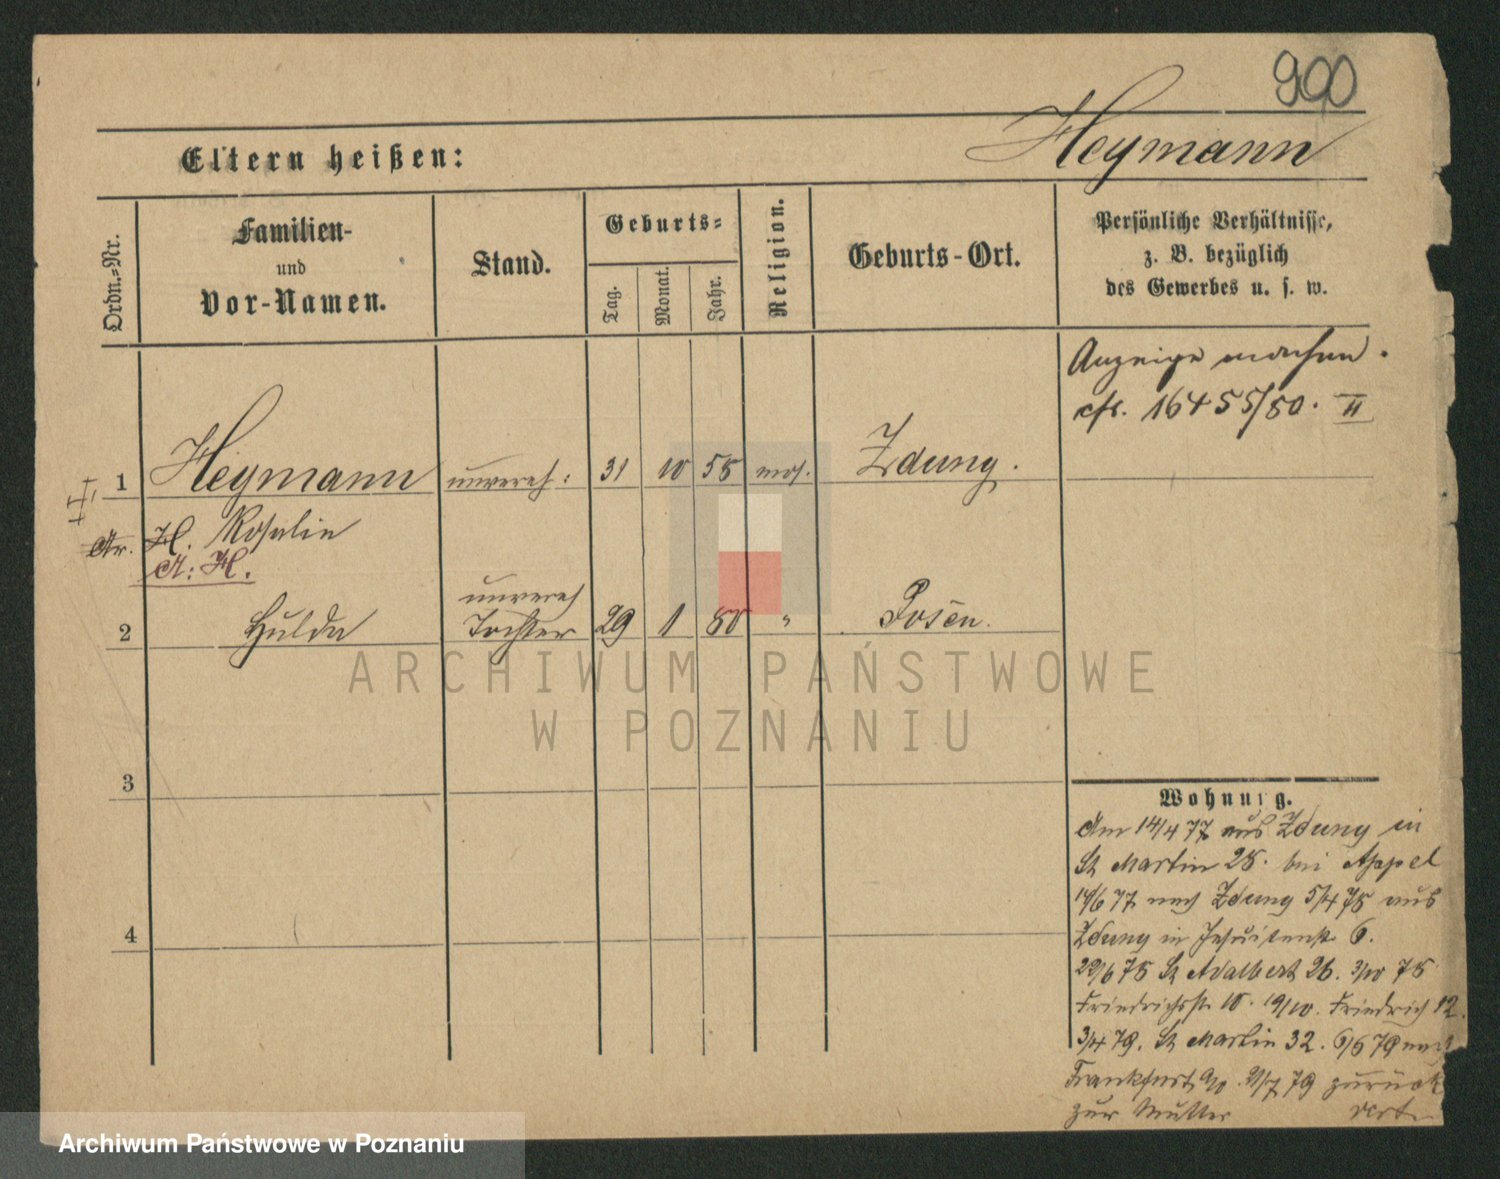 900
Heymann
Eltern heißen:
Ordn.-Nr.
Familien-
und
Vor-Namen.
Stand.
Geburts-
Tag.
Monat.
Jahr.
Religion.
Geburts-Ort.
Persönliche Verhältnisse,
z. B. bezüglich
des Gewerbes u. s. w.
Anzeige machen.
cfr. 16455/80. II
1 Heymann unvereh: 31 10 58 mos. Zduny.
H. Rosalie
A: H.
unvereh
2 Hulda Tochter 29 1 80 " Posen.
ARCHIWUM PAŃSTWOWE
W POZNANIU
3
4
Wohnung.
Am 14/4 77 aus Zduny in
St Martin 28. bei Appel
14/6 77 nach Zduny 5/4 78 aus
Zduny in Jesuitenstr 6.
29/6 78 St Adalbert 26. 3/10 78
Friedrichsstr 18. 19/10. Friedrich 12.
3/4 79. St Martin 32. 6/6 79 nach
Frankfurt a/o. 21/7 79 zurück
zur Mutter vert.
Archiwum Państwowe w Poznaniu